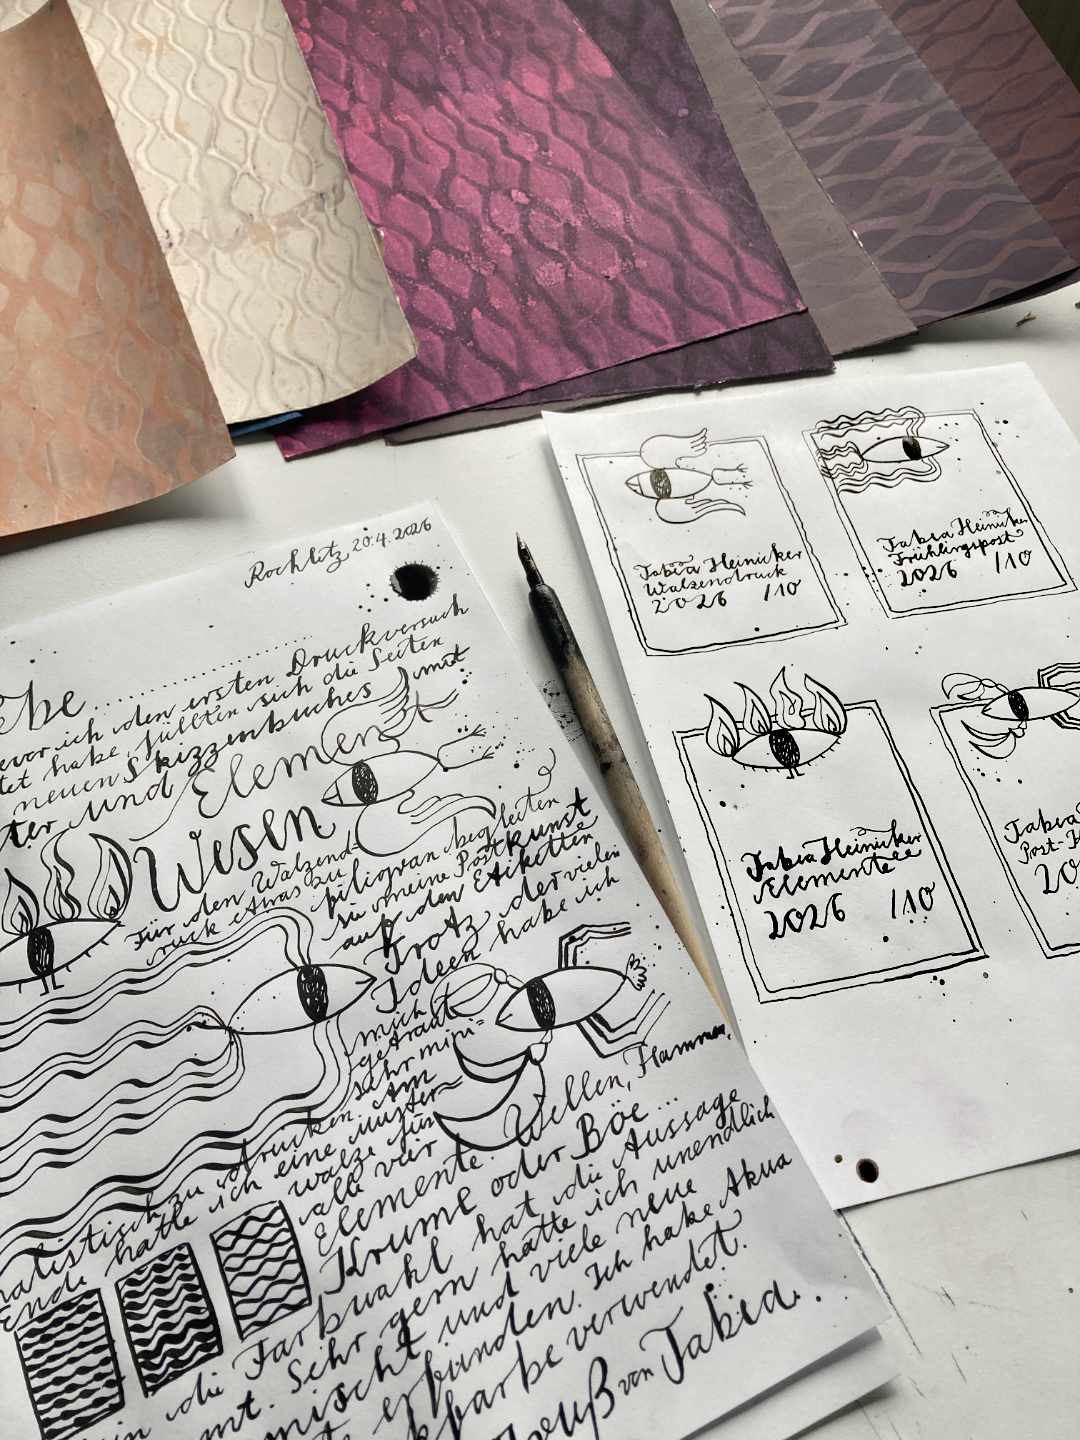 Rochlitz 20.4.2026
bevor ich den ersten Druckversuch
habe füllten sich die Seiten
neuen Skizzenbuches mit
und Elemen
Wesen
Für den Walzend=
ruck etwas zu
filigran begleiten
sie meine Postkunst
auf den Etiketten
Trotz der vielen
Ideen habe ich
mich
getraut
sehr mini=
malistisch zu drucken. Am
Ende hatte ich eine Muster=
walze für
alle vier
Elemente. Wellen, Flammen,
Krume oder Böe...
die Farbwahl hat die Aussage
Sehr gern hätte ich unendlich
gemischt und viele neue
erfunden. Ich habe Akua
verwendet.
Gruß von Tabea.
Tabea Heinicker
Walzendruck
2026 /10
Tabea Heinicker
Frühlingspost
2026 /10
Tabea Heinicker
Elemente
2026 /10
Tabea
Post-
20